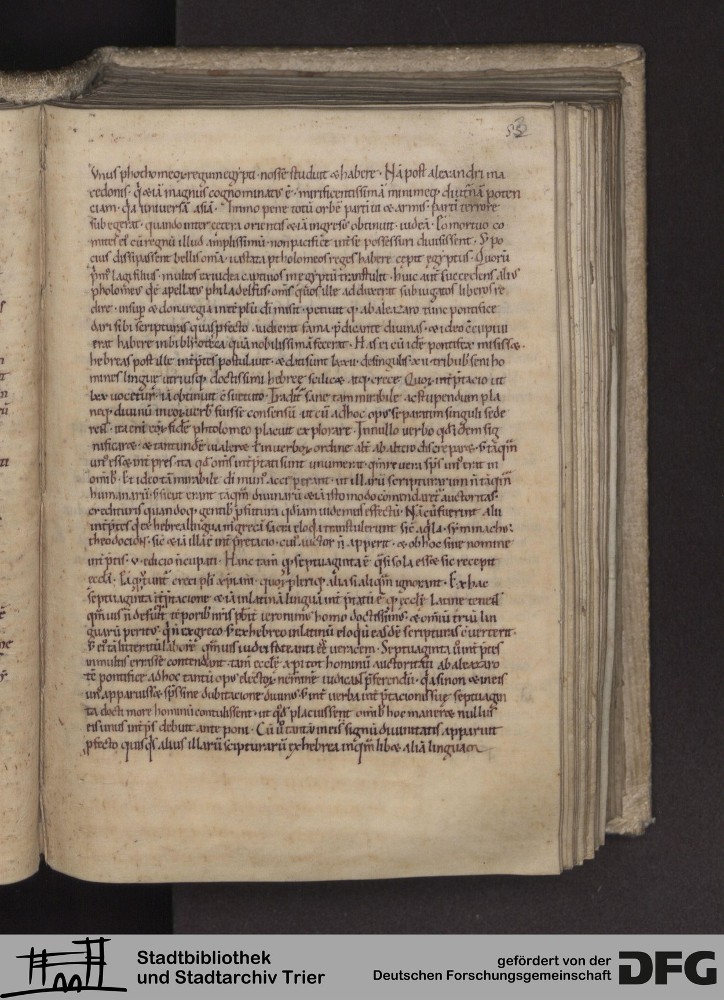 53
Vnus phtholomeoꝝ regum egypti nosse studuit & habere. Nā post alexandri ma
cedonis. q̇ &iā magnus cognominatꝰ ē. mirificentissimā minimeq; diuturnā poten
tiam. qua uniuersā asiā. immo pene totū orbē partim ui & armis. partī terrore
subegerat. quando inter cetera orientis &iā ingressꝰ obtinuit iudeā. Eo mortuo co
mites eī cū regnū illud amplissimū. non pacifice int se possessuri diuisissent. S; po
cius dissipassent bellis om̄ia uastata ptholomeos reges habere cepit egyptus. Quorū
p̄mꝰ lagi filius. multos ex iudea captiuos in egyptū transtulit. huic aut succedens aliꝰ
ptholomeꝰ qui ē appellatꝰ philadelfus. om̄s quos ille adduxerat subiugatos liberos re
dire. insup & dona regia in templū dī misit. petiuit q; ab aleazaro tunc pontifice
dari sibi scripturas quas p̄fecto audierat fama p̄dicante diuinas. & ideo c̄cupiui
erat habere in bibliotheca quā nobilissimā fecerat. Has ei cū idē pontifex misiss&
hebreas post ille int̄p̄tes postulauit. & dati sunt lxxii. de singulis xii. tribubꝰ seni ho
mines lingue utriusq; doctissimi hebree scilic& atq; grece. Quoꝝ int̄p̄tacio ut
lxx uocetur. iā obtinuit c̄suetudo. Tradit sane tam mirabile ac stupendum pla
neq; diuinū in eoꝝ uerbis fuisse consensū ut cū ad hoc opꝰ separatim singuli sede
rent. ita enī eoꝝ fidē phtolomeo placuit explorare. In nullo uerbo qd idem sig
nificar& & tantundē ualer& ł in uerboꝝ ordine alt̄ ab altero discrepar&. s; tāqm̄
unꝰ ess& int̄pres ita qd om̄s int̄p̄tati sunt unum erat. qm̄ re uera sp̄s unꝰ erat in
om̄ibꝰ. Et ideo tā mirabile dī munꝰ acceperant. ut illarū scripturarum n̄ tāqm̄
humanarū. s; sicut erant tāqm̄ diuinarū &iā isto modo com̄endar& auctoritas.
credituris quandoq; gentibꝰ p̄futura qd iam uidemus effectū. Nā cū fuerint alii
int̄p̄tes qui ex hebrea lingua in grecā sacra eloqia transtulerunt sic aq̇la. symmachꝰ.
theodocion. sic & iā illa ē int̄p̄retacio. cuiꝰ auctor n̄ apperit. & ob hoc sine nomine
int̄p̄tis. v. edicio nc̄upati. Hanc tam̄ q; septuaginta ē. q̄si sola ess& sic recepit
eccl̄ia. Ea q; utunt̄ greci ppl̄i xp̄iani. quoꝝ pleriq; alia sit aliqua ignorant. Ex hac
septuaginta int̄p̄tacione &iā in latinā linguā int̄p̄tatū ē. q; eccl̄ie latine tenent.
qm̄uis n̄ defuit tēporibꝰ nr̄is p̄bit ieronimꝰ homo doctissimꝰ & omniū triū lin
guarū peritus. qui n̄ ex greco s; ex hebreo in latinū eloqū easdē scripturas c̄uerterit.
S; eiꝰ tā litteratū laborē qm̄uis iudei fateant̄ eē ueracem. Septuaginta ū int̄p̄tes
in multis errasse contendunt. tam̄ eccl̄ie xp̄i tot hominū auctoritati ab aleazaro
tē pontifice ad hoc tantū opus electoꝝ. neminē iudicant p̄ferendū. quia si non & in eis
unꝰ apparuiss& sp̄s sine dubitacione diuinꝰ. s; int se uerba int̄p̄tacionis sue septuagin
ta docti more hominū contulissent. ut qd placuissent om̄ibꝰ hoc maner& nullus
eis unus int̄p̄s debuit ante poni. Cū ū tantū in eis signū diuinitatis apparuit
p̄fecto quisq̇s alius illarū scripturarū ex hebrea in qm̄lib& aliā linguam
Stadtbibliothek
und Stadtarchiv Trier
gefördert von der
Deutschen Forschungsgemeinschaft
DFG